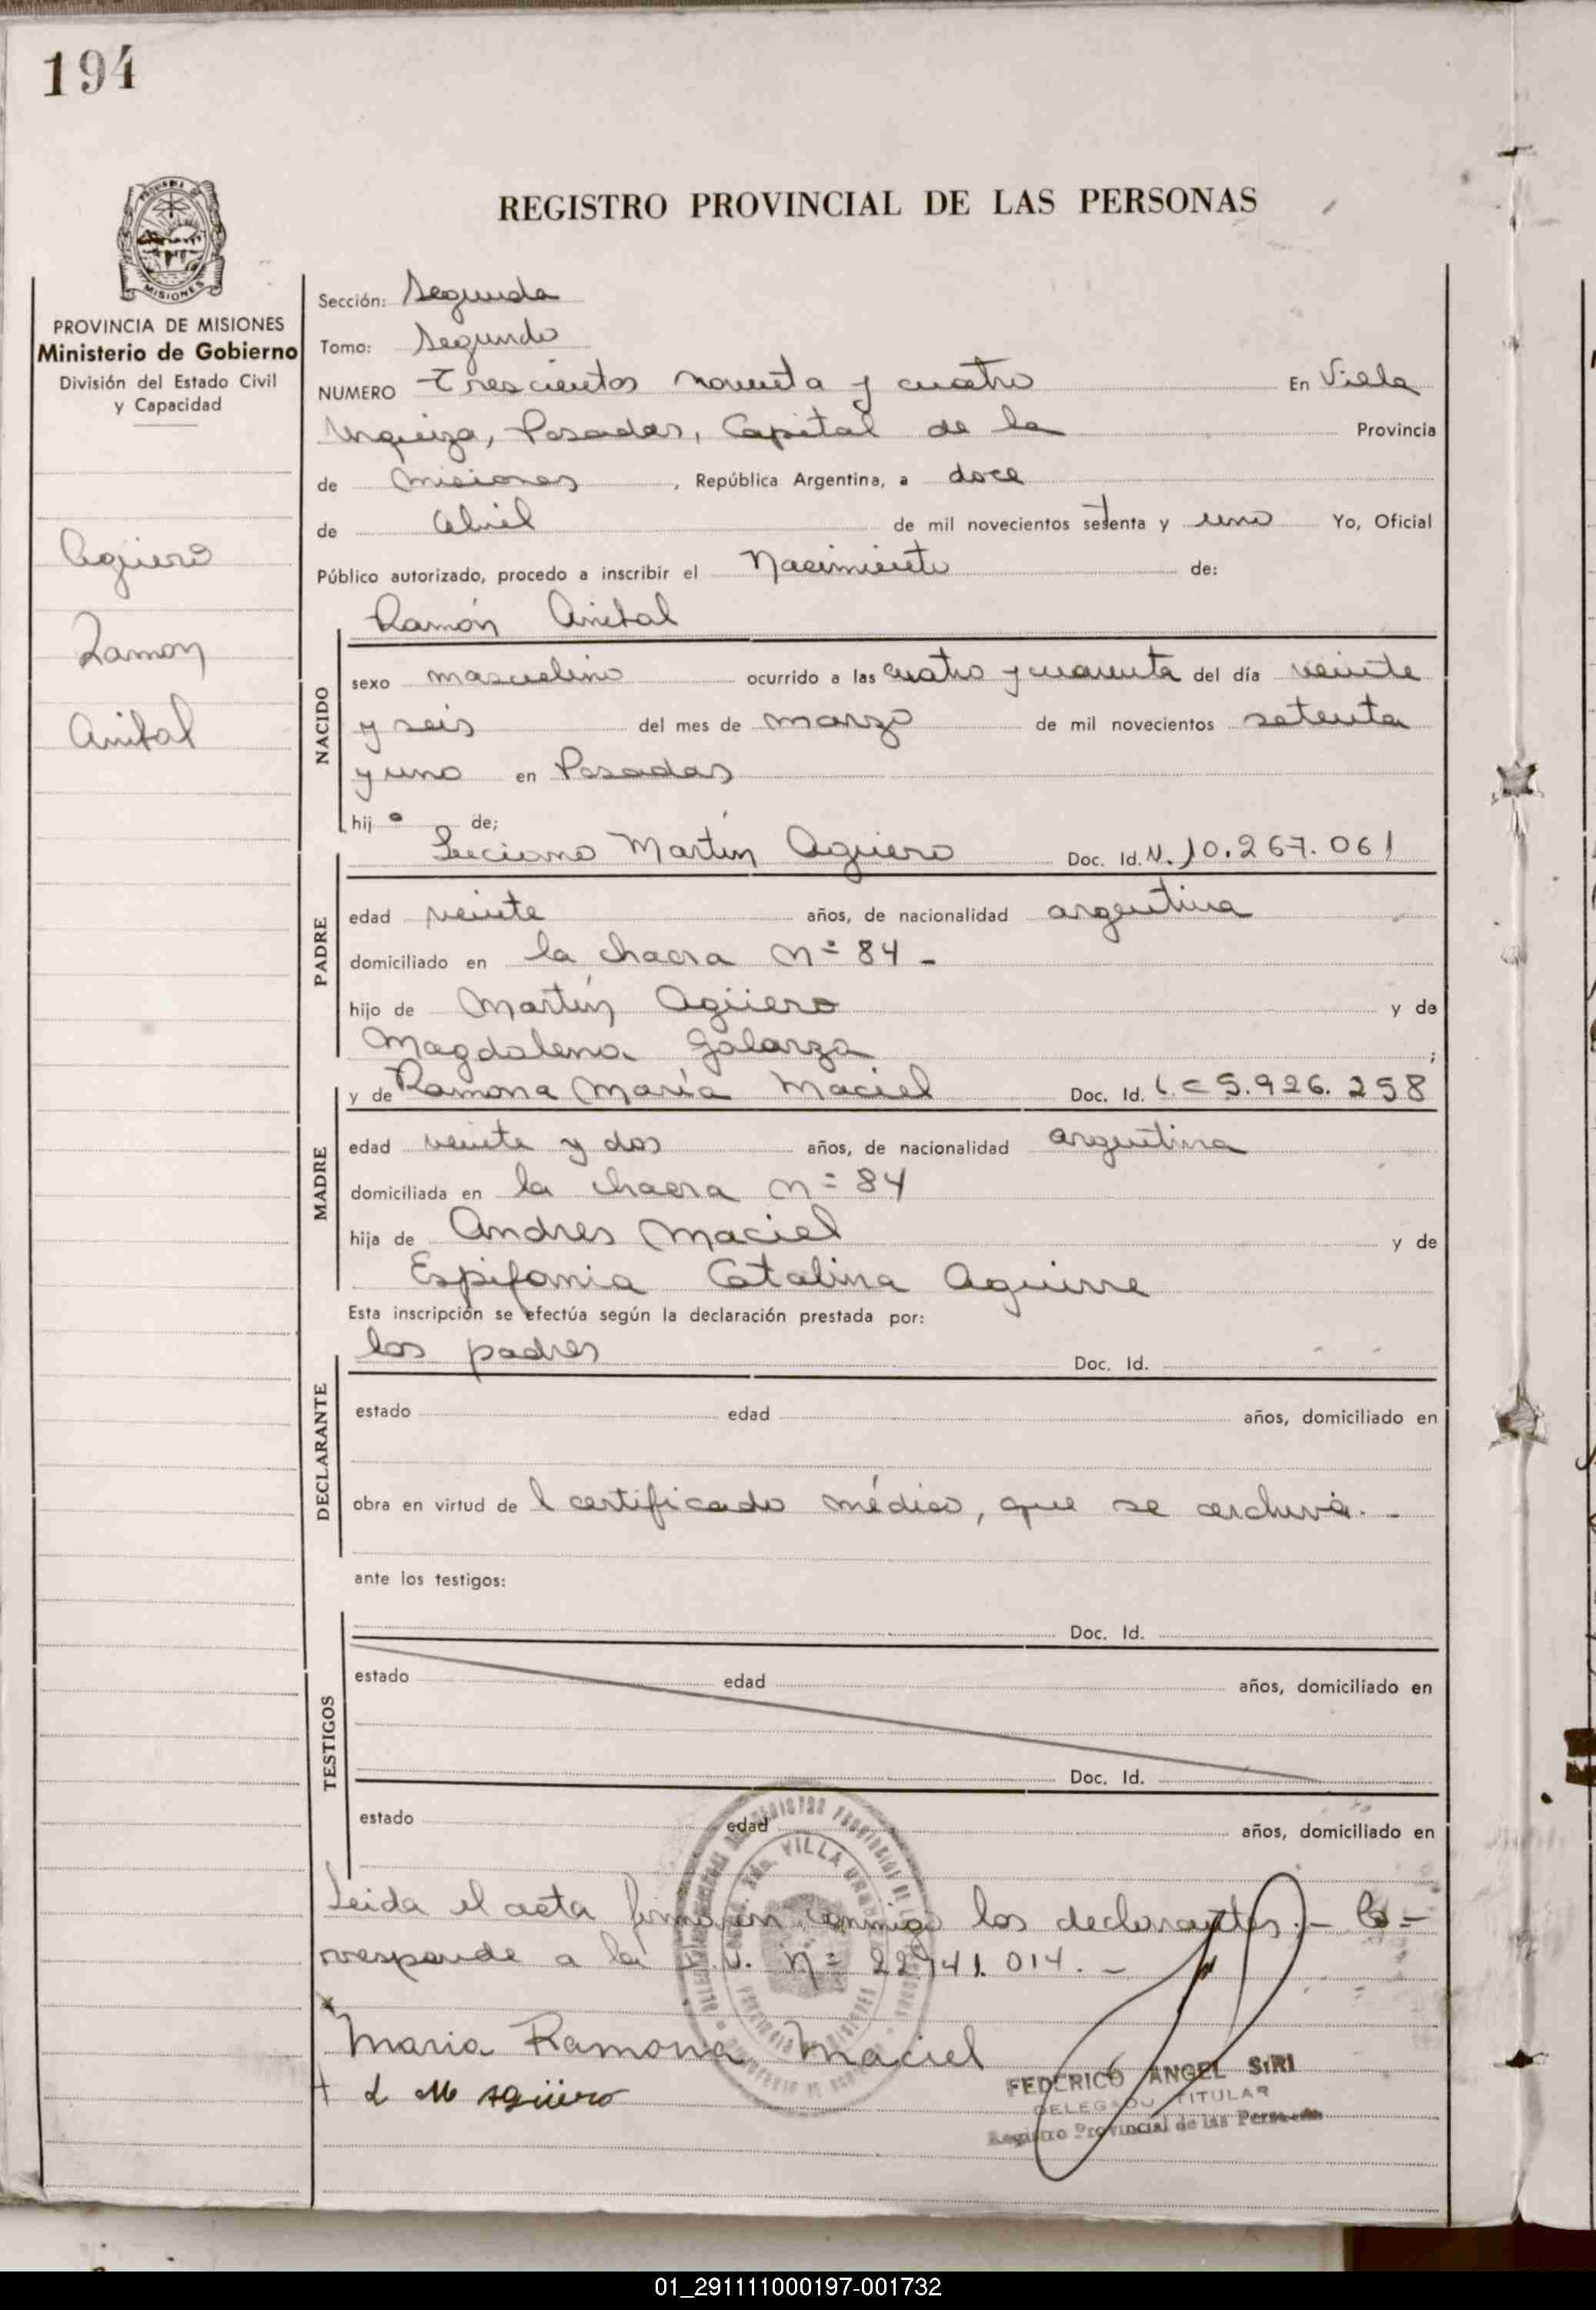 194
REGISTRO PROVINCIAL DE LAS PERSONAS
MISIONES
PROVINCIA DE MISIONES
Ministerio de Gobierno
División del Estado Civil
y Capacidad
Agüero
Ramon
Anibal
Sección: Segunda
Tomo: Segundo
NUMERO Trescientos noventa y cuatro En Villa
Urquiza, Posadas, Capital de la Provincia
de Misiones, República Argentina, a doce
de Abril de mil novecientos setenta y uno Yo, Oficial
Público autorizado, procedo a inscribir el Nacimiento de:
Ramón Anibal
NACIDO
sexo masculino ocurrido a las cuatro y cuarenta del día veinte
y seis del mes de marzo de mil novecientos setenta
y uno en Posadas
hijo de;
Luciano Martín Agüero Doc. Id. N. 10.267.061
PADRE
edad veinte años, de nacionalidad argentina
domiciliado en la chacra Nº 84 -
hijo de Martín Agüero y de
Magdalena Galarza ;
y de Ramona María Maciel Doc. Id. L.C 5.926.258
MADRE
edad veinte y dos años, de nacionalidad argentina
domiciliada en la chacra nº 84
hija de Andres Maciel y de
Espifania Catalina Aguirre
Esta inscripción se efectúa según la declaración prestada por:
los padres Doc. Id.
DECLARANTE
estado edad años, domiciliado en
obra en virtud del certificado médico, que se archiva. -
ante los testigos:
Doc. Id.
TESTIGOS
estado edad años, domiciliado en
Doc. Id.
estado edad años, domiciliado en
Leida el acta firmaron conmigo los declarantes. - Co=
rresponde a la nº 22941.014. -
Maria Ramona Maciel
L M Agüero
FEDERICO ANGEL SIRI
DELEGADO TITULAR
Registro Provincial de las Personas
VILLA
01_291111000197-001732